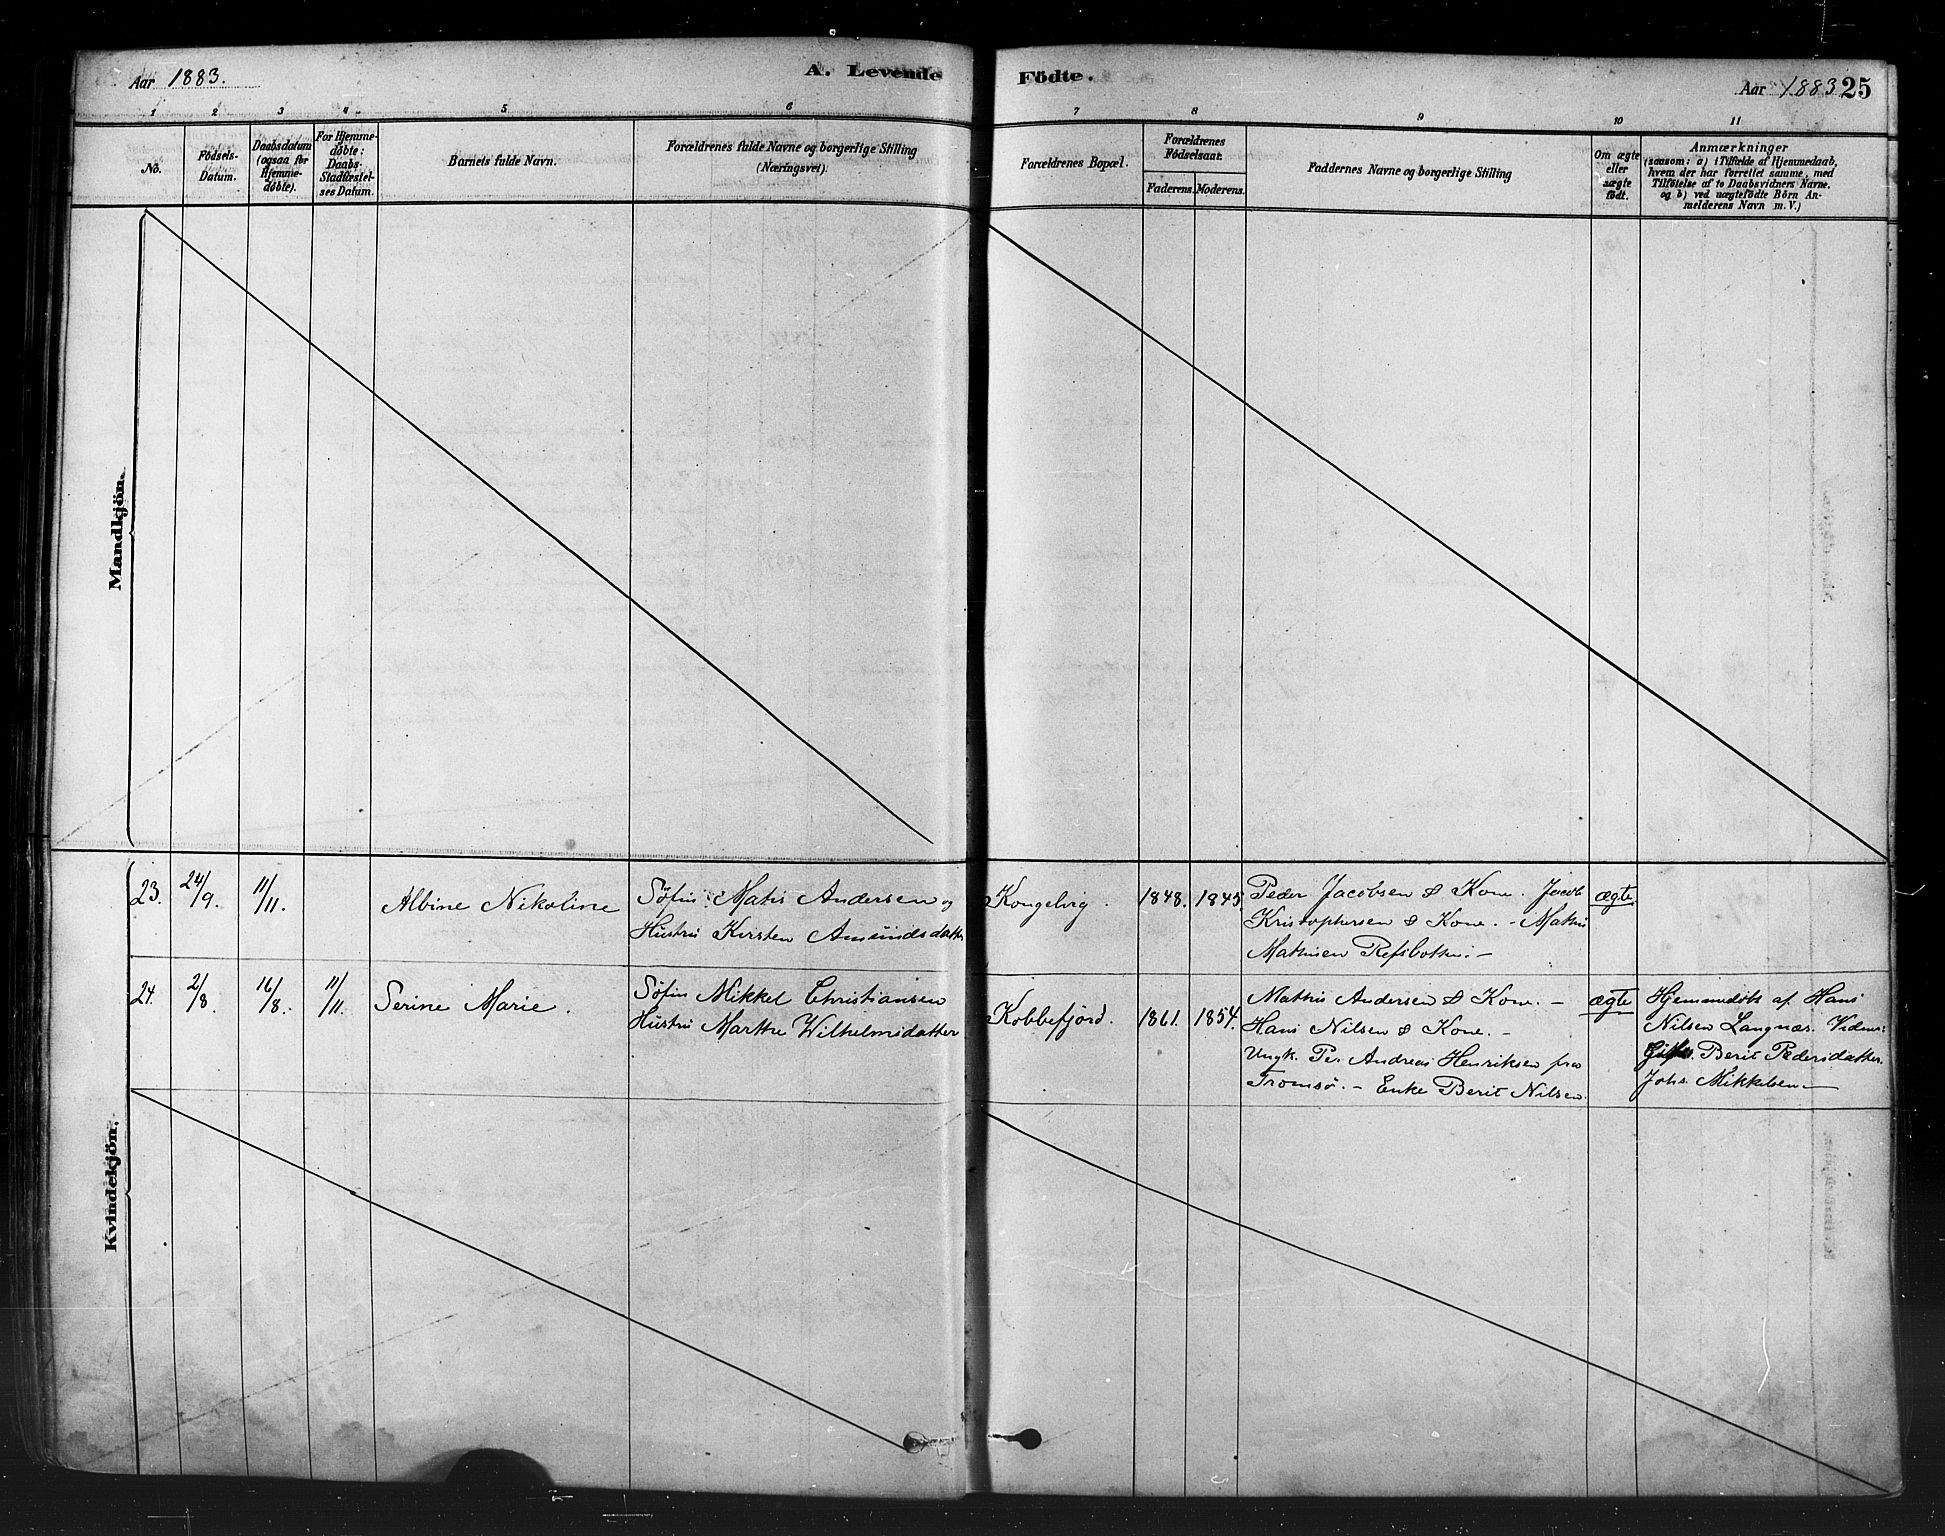 Aar 1883.
A. Levende
Födte.
Aar 1883
25
1 2 3 4 5 6 7 8 9 10 11
No.
Födsels-
Datum.
Daabsdatum
(ogsaa for
Hjemme-
døbte).
For Hjemme-
døbte:
Daabs-
Stadfæstel-
ses Datum.
Barnets fulde Navn.
Forældrenes fulde Navne og borgerlige Stilling
(Næringsvei).
Forældrenes Bopæl.
Forældrenes
Fødselsaar.
Faderens. Moderens.
Faddernes Navne og borgerlige Stilling
Om ægte
eller
uægte
født.
Anmærkninger
(saasom: a) i Tilfælde af Hjemmedaab,
hvem der har forrettet samme, med
Tilføielse af to Daabsvidners Navne.
og b) ved uægtefødte Börn An-
melderens Navn m. V.)
Mandkjön.
Kvindekjön.
23. 24/9. 11/11. Albine Nikoline
Søfin: Matis Andersen og
Hustru Kirsten Amundsdatter
Kongelvig. 1848. 1845.
Peder Jacobsen & Kone. Jacob
Kristophersen & Kone. - Mathis
Mathisen Refsbotten. -
ægte.
24. 2/8. 16/8. 11/11. Serine Marie.
Søfin Mikkel Christiansen
Hustru Marthe Wilhelmsdatter
Kobbefjord. 1861. 1854.
Mathis Andersen & Kone. -
Hans Nilsen & Kone. -
Ungk. Per Andreas Henriksen fra
Tromsø. - Enke Berit Nilsen.
ægte
Hjemmedøbt af Hans
Nilsen Langnæs. Vidner:
Berit Pedersdatter.
Johs. Mikkelsen